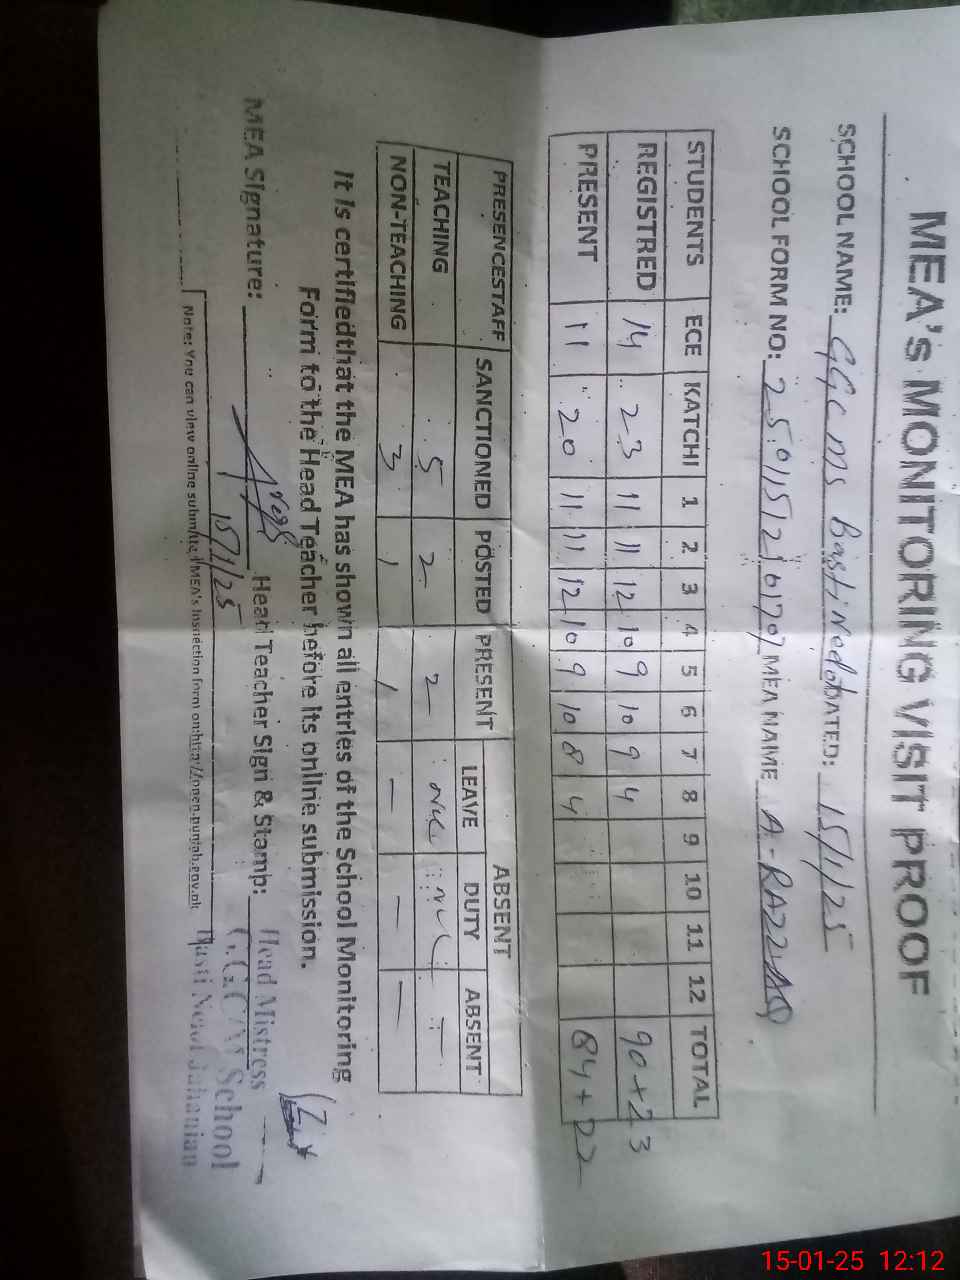 MEA's MONITORING VISIT PROOF
SCHOOL NAME: GGCMS Basti DATED: 15/1/25
SCHOOL FORM NO: MEA NAME A-RAZZAQ
STUDENTS ECE KATCHI 1 2 3 4 5 6 7 8 9 10 11 12 TOTAL
REGISTRED 14 23 11 11 12 10 9 10 9 4 90+23
PRESENT 11 20 11 11 12 10 9 10 8 4 84+22
PRESENCESTAFF SANCTIONED POSTED PRESENT ABSENT
LEAVE DUTY ABSENT
TEACHING 5 2 2
NON-TEACHING 3 1 1 - - -
It is certifiedthat the MEA has shown all entries of the School Monitoring
Form to the Head Teacher before its online submission.
MEA Signature: Head Teacher Sign & Stamp:
15/1/25
Head Mistress
School
Jahanian
Note: You can view online submitted MEA's Inspection form on:http://open.punjab.gov.pk
15-01-25 12:12